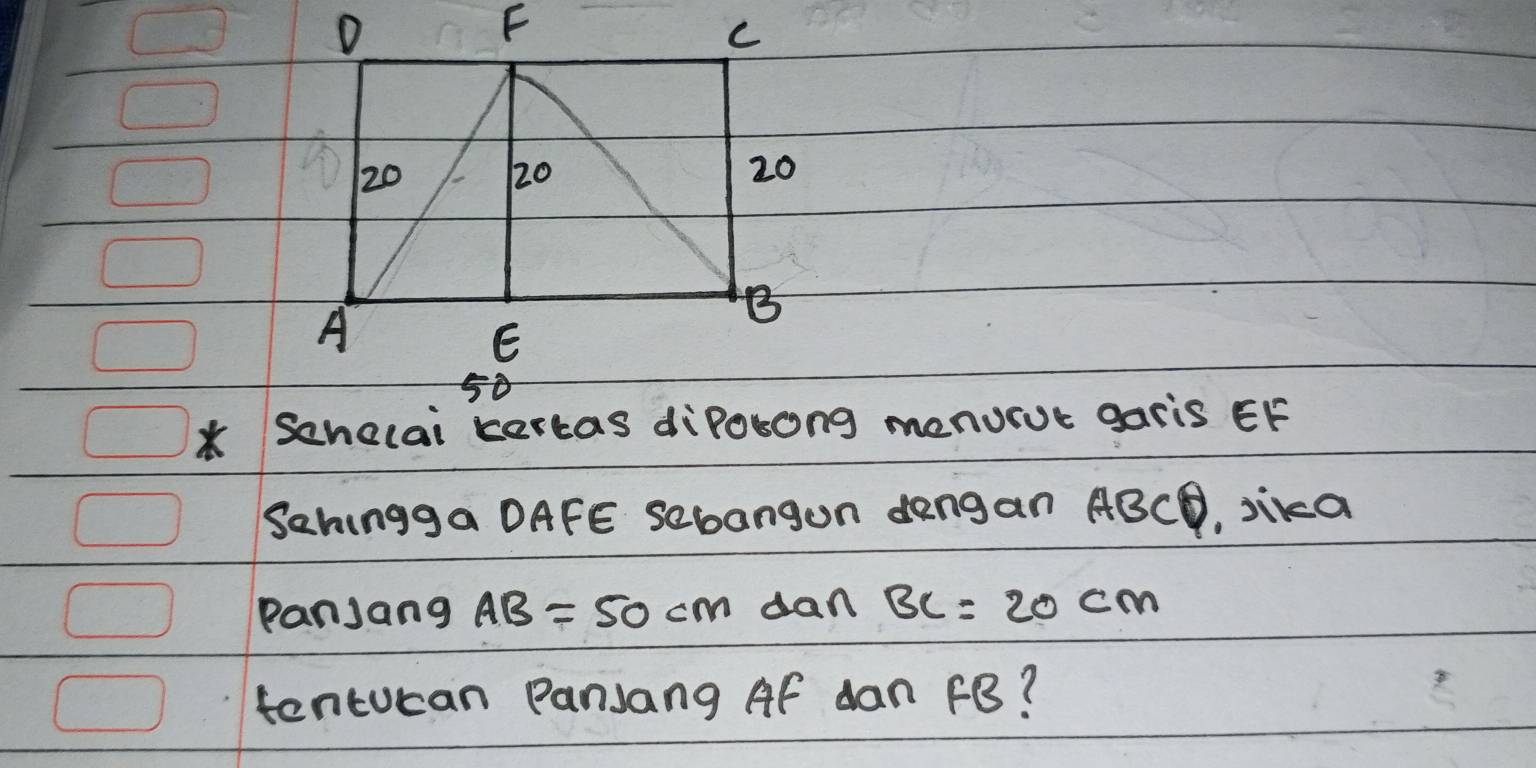 D F C
20 20 20
A E B
50
* Sehelai kertas dipotong menurut garis EF
Sehingga DAFE sebangun dengan ABCD, jika
panjang AB = 50 cm dan BC = 20 cm
tentukan panjang AF dan FB?